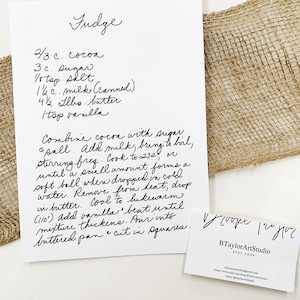 Fudge
2/3 c. cocoa
3 c. sugar
1/8 tsp salt
1 1/2 c. milk (canned)
4 1/2 tbs. butter
1 tsp vanilla
Combine cocoa with sugar
& salt. Add milk, bring to boil,
stirring freq. Cook to 232°, or
until a small amount forms a
soft ball when dropped in cold
water. Remove from heat, drop
in butter. Cool to lukewarm
(110°) Add vanilla & beat until
mixture thickens. Pour into
buttered pan & cut in squares.
Brooke Taylor
BTaylorArtStudio